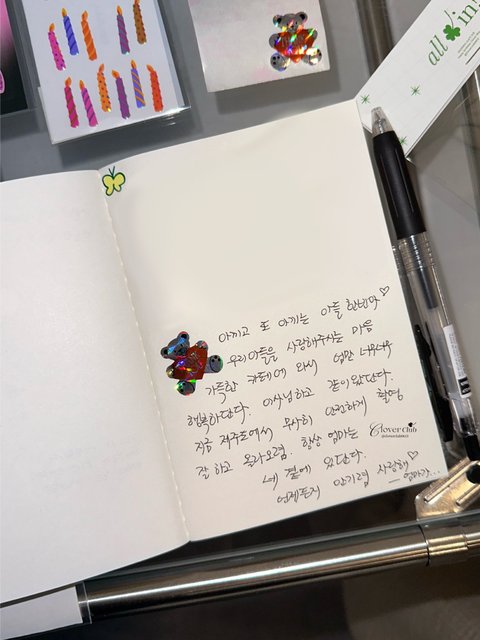 all in
아끼고 또 아끼는 아들 한빈아♡
우리아들을 사랑해주시는 마음
가득한 카페에 와서 엄만 너무너무
행복하단다. 이사님하고 같이 왔단다.
지금 제주도에서 무사히 안전하게 촬영
잘 하고 올라오렴. 항상 엄마는
네 곁에 있단다.
언제든지 안기렴 사랑해♡
엄마가...
Clover Club